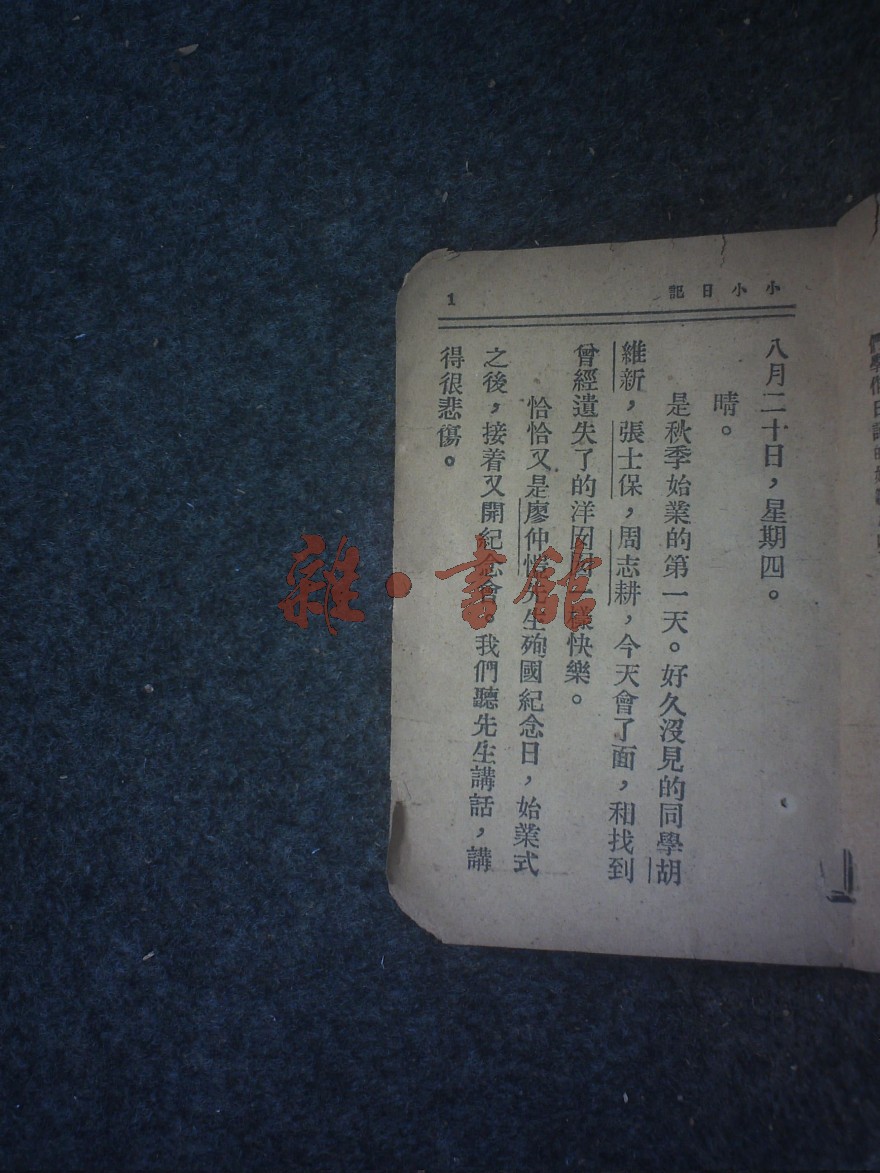 小小日記
1
八月二十日，星期四。
晴。
是秋季始業的第一天。好久沒見的同學胡
維新，張士保，周志耕，今天會了面，和找到
曾經遺失了的洋囡囡一樣快樂。
恰恰又是廖仲愷先生殉國紀念日，始業式
之後，接着又開紀念會。我們聽先生講話，講
得很悲傷。
雜·書館